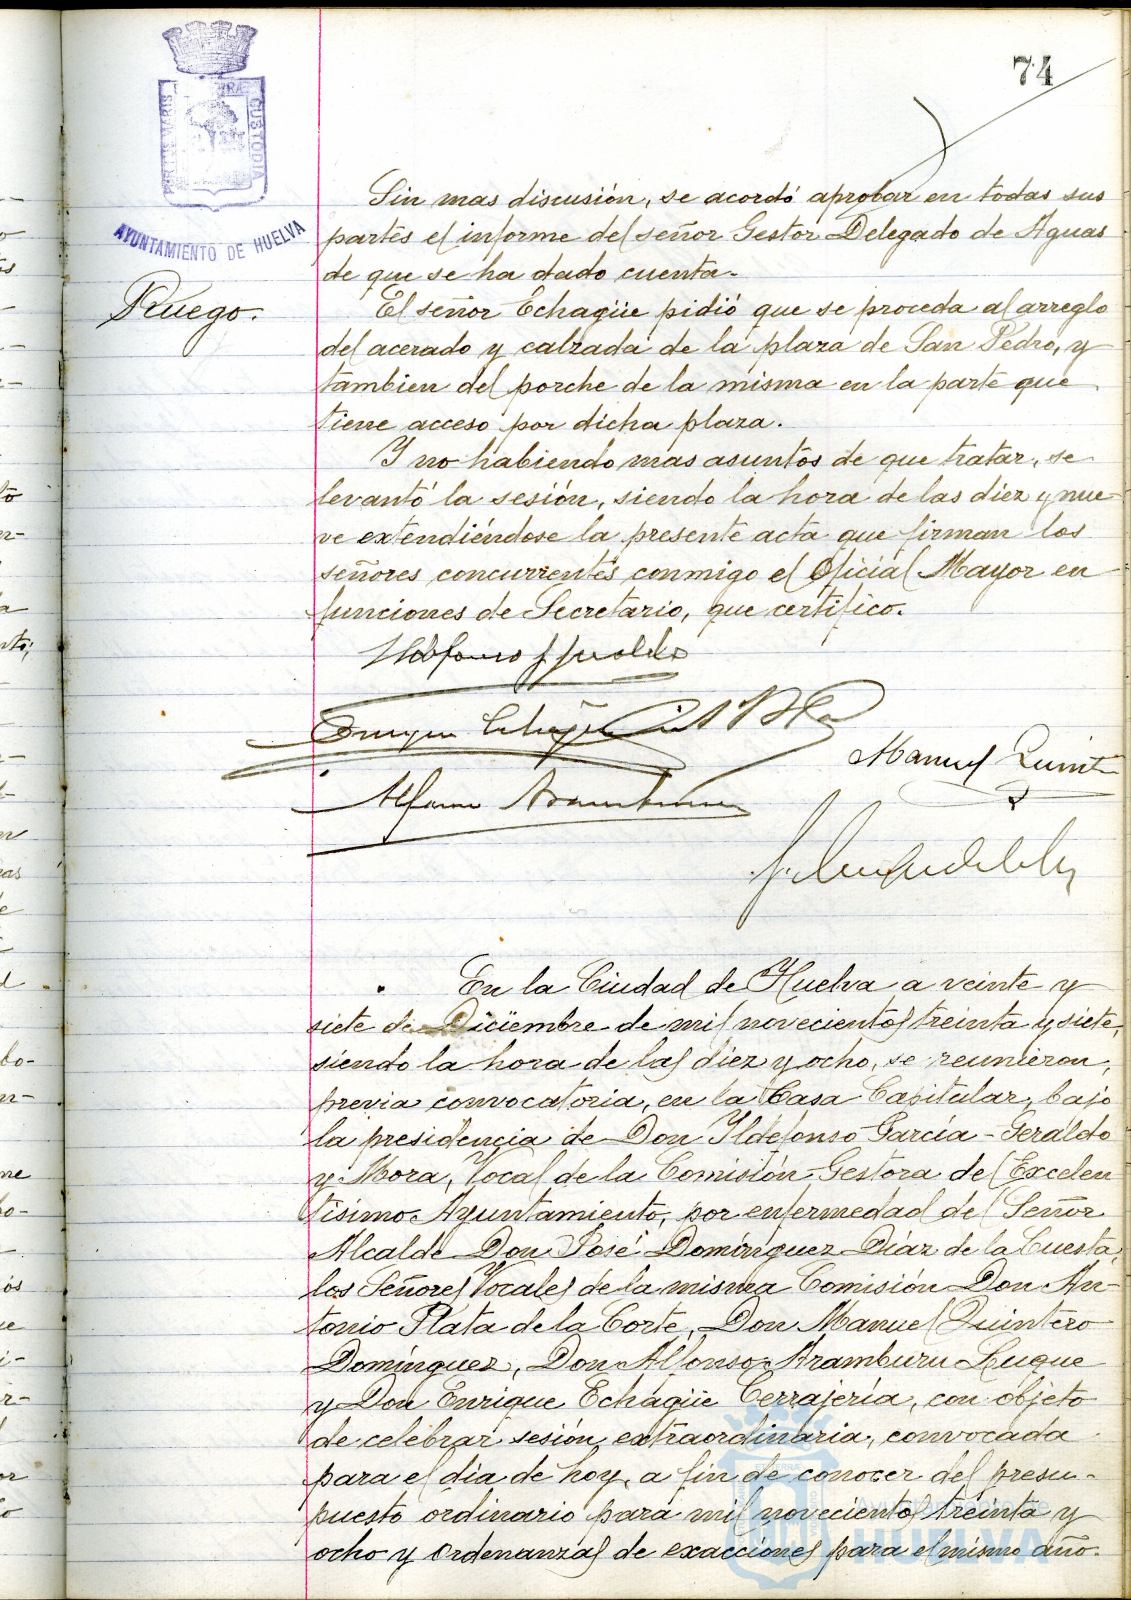 74
PORTUS MARIS ET TERRAE CUSTODIA
AYUNTAMIENTO DE HUELVA
Sin mas discusión, se acordó aprobar en todas sus
partes el informe del señor Gestor Delegado de Aguas
de que se ha dado cuenta.
Ruego.
El señor Echagüe pidió que se proceda al arreglo
del acerado y calzada de la plaza de San Pedro, y
tambien del porche de la misma en la parte que
tiene acceso por dicha plaza.
Y no habiendo mas asuntos de que tratar, se
levantó la sesión, siendo la hora de las diez y nue-
ve extendiéndose la presente acta que firman los
señores concurrentes conmigo el Oficial Mayor en
funciones de Secretario, que certifico.
Ildefonso G Geraldo
Enrique Echagüe
Manuel Quintero
Alfonso Aramburu
En la Ciudad de Huelva a veinte y
siete de Diciembre de mil novecientos treinta y siete,
siendo la hora de las diez y ocho, se reunieron,
previa convocatoria, en la Casa Capitular, bajo
la presidencia de Don Ildefonso García-Geraldo
y Mora, Vocal de la Comisión Gestora del Excelen
tisimo Ayuntamiento, por enfermedad del Señor
Alcalde Don José Domínguez Díaz de la Cuesta,
los Señores Vocales de la misma Comisión Don An-
tonio Plata de la Corte, Don Manuel Quintero
Domínguez, Don Alfonso Aramburu Luque
y Don Enrique Echágüe Cerrajería, con objeto
de celebrar sesión extraordinaria, convocada
para el día de hoy, a fin de conocer del presu-
puesto ordinario para mil novecientos treinta y
ocho y ordenanzas de exacciones para el mismo año.
Ayuntamiento de
HUELVA